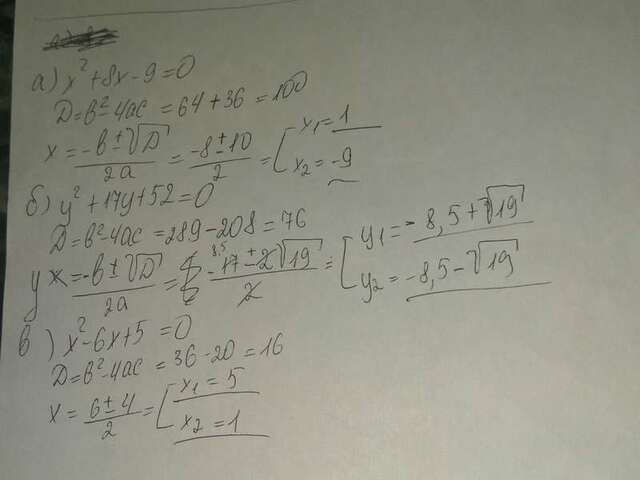 а) x² + 8x - 9 = 0
D = b² - 4ac = 64 + 36 = 100
x = (-b ± √D) / 2a = (-8 ± 10) / 2 = [ x₁ = 1
x₂ = -9
б) y² + 17y + 52 = 0
D = b² - 4ac = 289 - 208 = 76
y = (-b ± √D) / 2a = 8,5 (-17 ± 2√19) / 2 = [ y₁ = -8,5 + √19
y₂ = -8,5 - √19
в) x² - 6x + 5 = 0
D = b² - 4ac = 36 - 20 = 16
x = (6 ± 4) / 2 = [ x₁ = 5
x₂ = 1